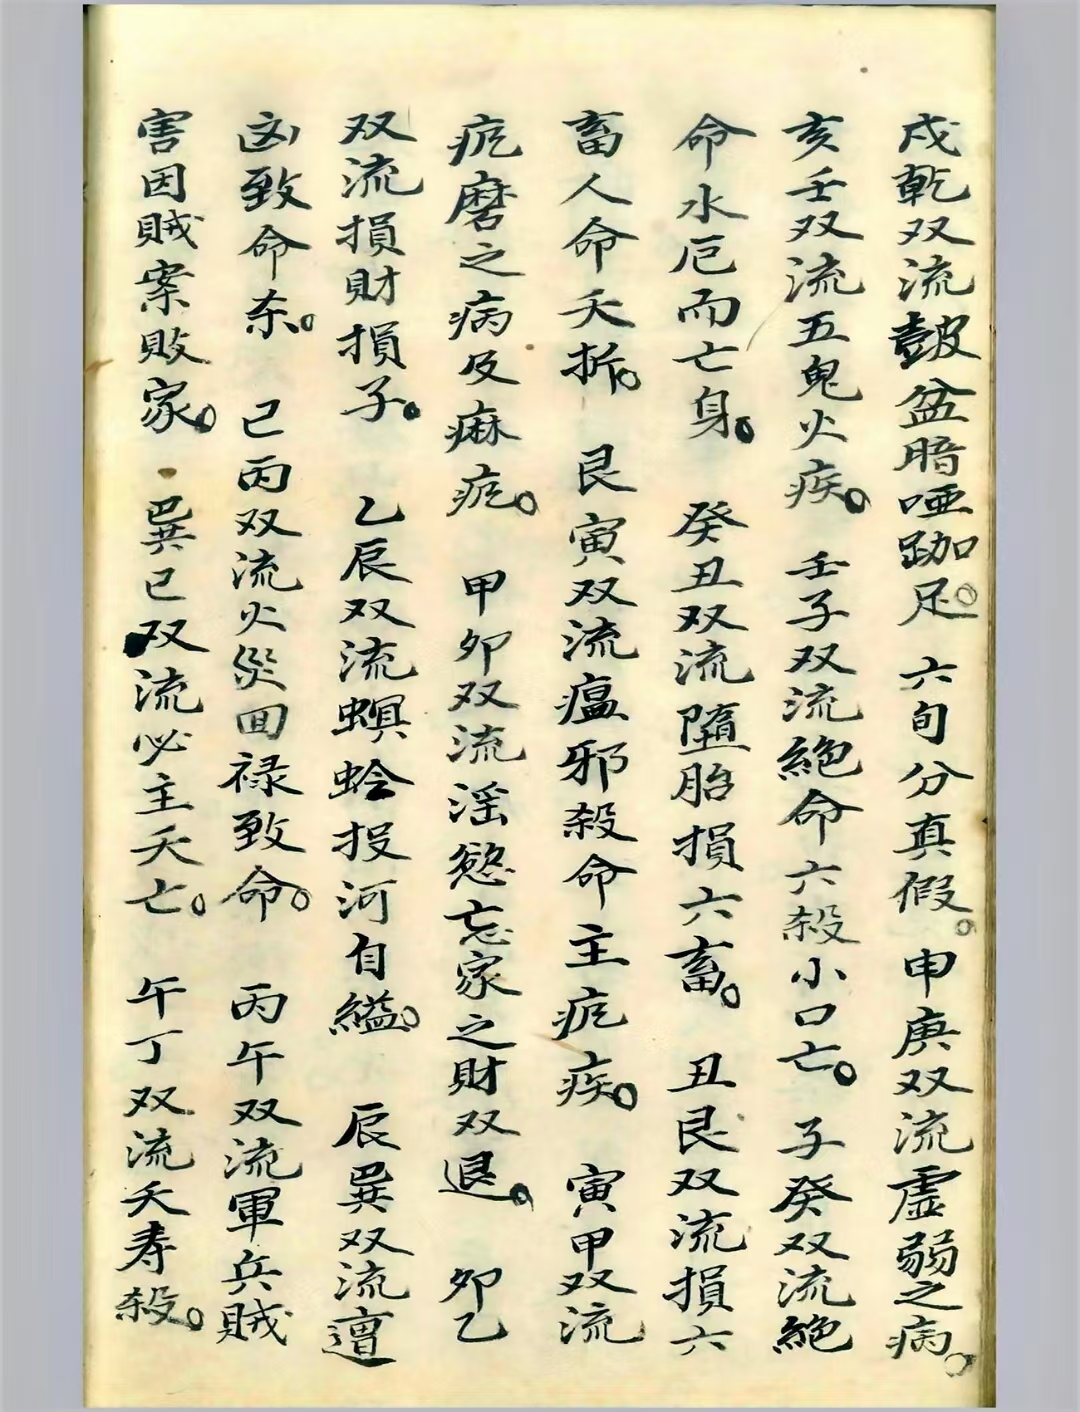 戌乾双流鼓盆暗哑跏足。六旬分真假。申庚双流虛弱之病。
亥壬双流五鬼火疾。壬子双流絕命六殺小口亡。子癸双流絕
命水厄而亡身。癸丑双流墮胎損六畜。丑艮双流損六
畜人命夭折。艮寅双流瘟邪殺命主疙疾。寅甲双流
疙磨之病及痳疙。甲卯双流滛慾忘家之財双退。卯乙
双流損財損子。乙辰双流螟蛉投河自縊。辰巽双流遭
凶致命夲。巳丙双流火災回禄致命。丙午双流軍兵賊
害因賊案敗家。巽巳双流必主夭亡。午丁双流夭寿殺。